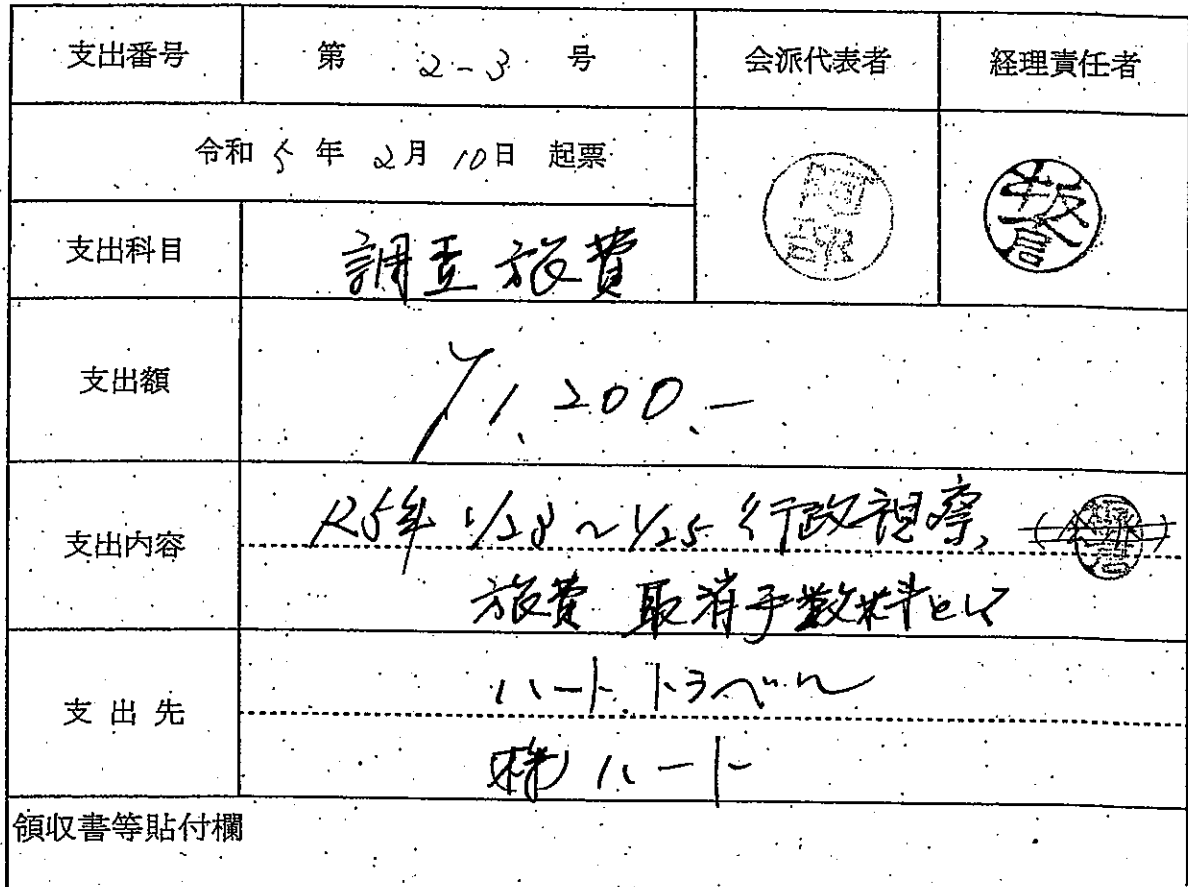 支出番号 第 2-3 号 会派代表者 経理責任者
令和 5 年 2月 10日 起票
支出科目 調査旅費
支出額 ¥1,200.-
支出内容 R5年 1/23~1/25 行政視察、
旅費 取消手数料として
支出先 ハートトラベル
(株)ハート
領収書等貼付欄